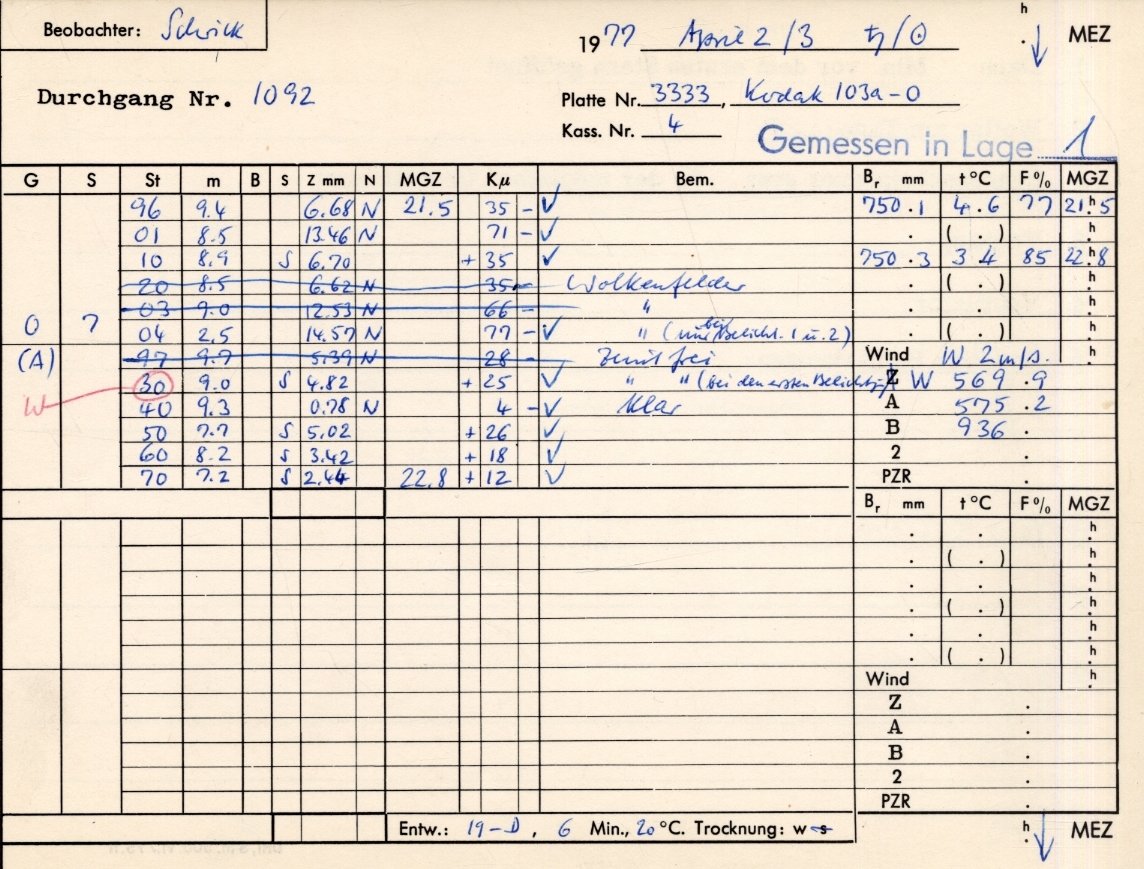 Beobachter: Schrick
h
1977 April 2/3 ♄/☉ . ↓ MEZ
Durchgang Nr. 1092
Platte Nr. 3333, Kodak 103a-O
Kass. Nr. 4
Gemessen in Lage 1
G S St m B S Z mm N MGZ Kμ Bem. Br mm t°C F% MGZ
96 9.4 6.68 N 21.5 35 - √ 750.1 4.6 77 21.h5
01 8.5 13.46 N 71 - √ . ( . )
10 8.9 S 6.70 + 35 √ 750.3 3 4 85 22.h8
20 8.5 6.62 N 35 - Wolkenfelder . ( . ) h.
03 9.0 12.53 N 66 - " . . h.
0 7 04 2.5 14.57 N 77 - √ " (nur bei Belicht. 1 u. 2) . ( . ) h.
(A) 97 9.7 5.39 N 28 - Zenit frei Wind W 2m/s. h.
30 9.0 S 4.82 + 25 √ " " (bei den ersten Z W 569.9
W 40 9.3 0.78 N 4 - √ klar A 575.2
50 7.7 S 5.02 + 26 √ B 936.
60 8.2 S 3.42 + 18 √ 2 .
70 7.2 S 2.44 22.8 + 12 √ PZR .
Br mm t°C F% MGZ
. . h.
. ( . ) h.
. . h.
. ( . ) h.
. . h.
. ( . ) h.
Wind h.
Z .
A .
B .
2 .
PZR .
Entw.: 19-D, 6 Min., 20 °C. Trocknung: w s h. ↓ MEZ